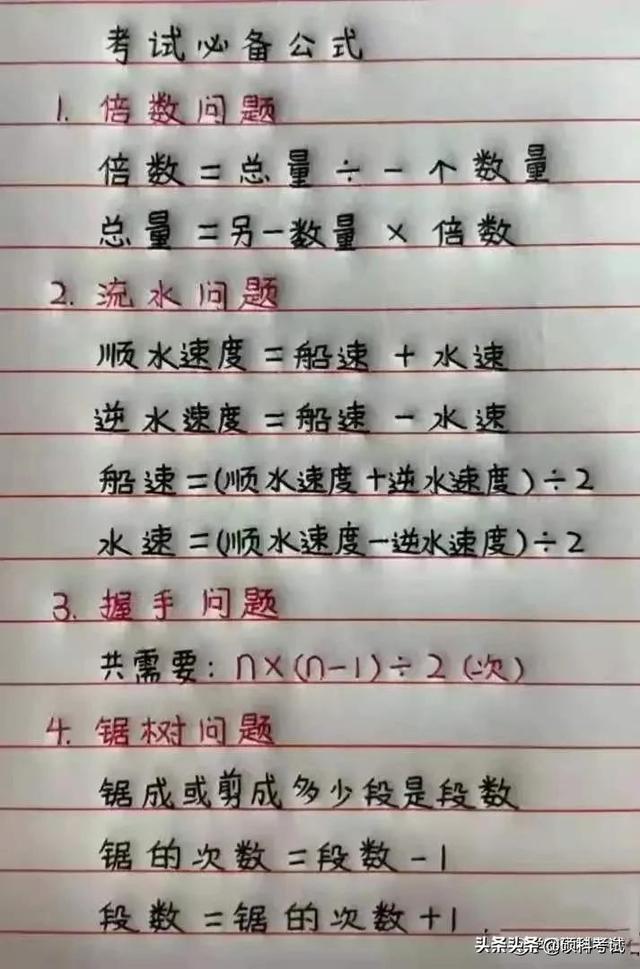 考试必备公式
1. 倍数问题
倍数=总量÷一个数量
总量=另一数量×倍数
2. 流水问题
顺水速度=船速+水速
逆水速度=船速-水速
船速=(顺水速度+逆水速度)÷2
水速=(顺水速度-逆水速度)÷2
3. 握手问题
共需要: n×(n-1)÷2(次)
4. 锯树问题
锯成或剪成多少段是段数
锯的次数=段数-1
段数=锯的次数+1
头条 @硕科考试